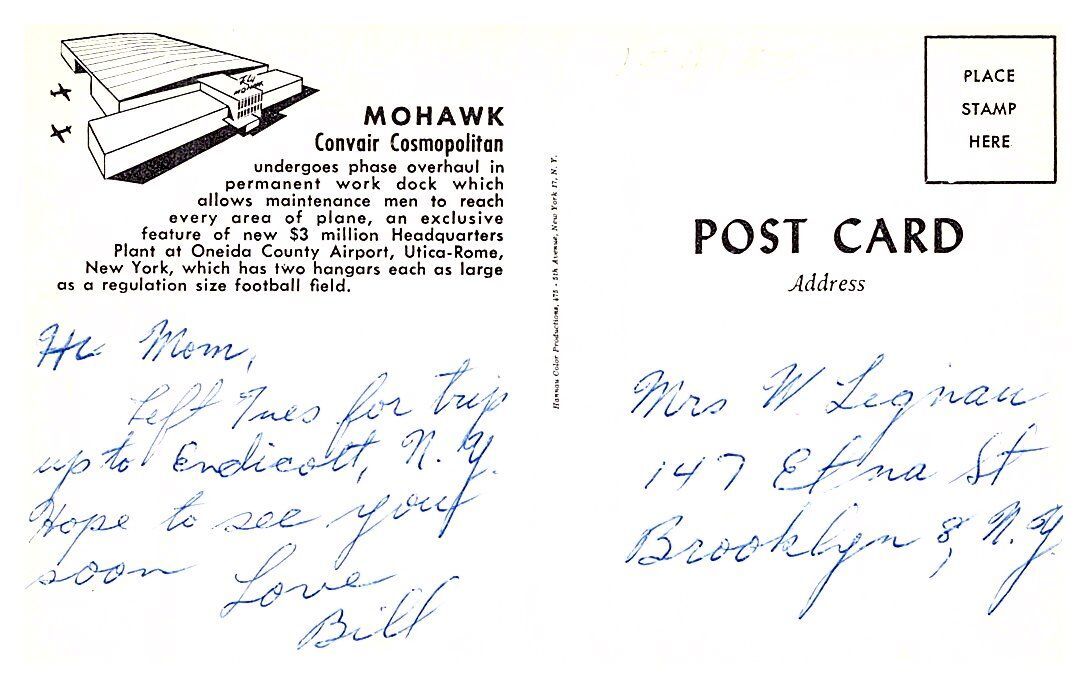 Fly
MOHAWK
MOHAWK
Convair Cosmopolitan
undergoes phase overhaul in
permanent work dock which
allows maintenance men to reach
every area of plane, an exclusive
feature of new $3 million Headquarters
Plant at Oneida County Airport, Utica-Rome,
New York, which has two hangars each as large
as a regulation size football field.
Hi Mom,
Left Tues for trip
up to Endicott, N. Y.
Hope to see you
soon
Love
Bill
Hannau Color Productions, 475 - 5th Avenue, New York 17, N. Y.
PLACE
STAMP
HERE
POST CARD
Address
Mrs W Lignau
147 Etna St
Brooklyn 8, N.Y.